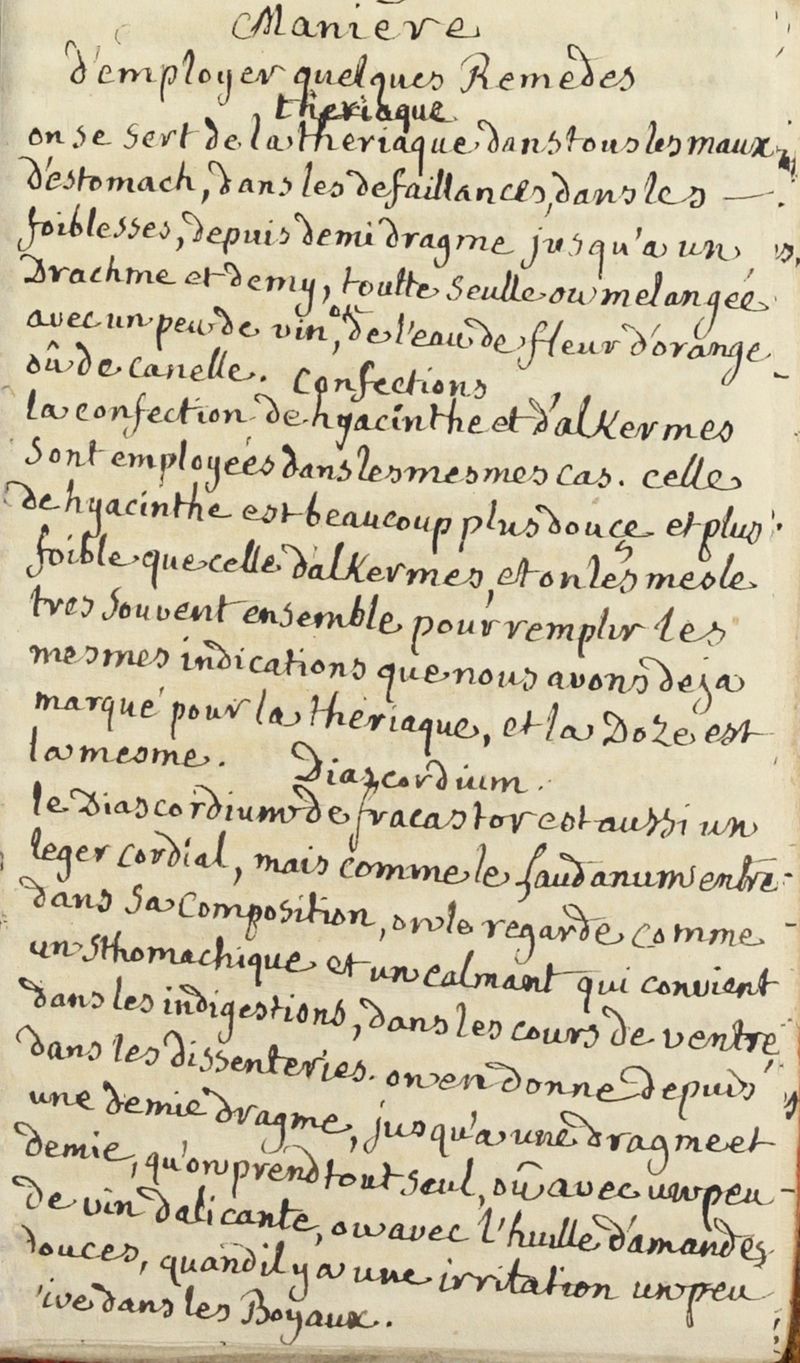 Maniere
d'employer quelques Remedes
theriaque
on se sert de la theriaque dans tous les maux
d'estomach, dans les defaillances, dans les —
foiblesses, depuis demi dragme jusqu'a un
Drachme et demy, toutte seulle ou melangée
avec un peu de vin, ou de l'eau de fleur d'orange
oû de canelle. Confections
la confection de hyacinthe et d'alkermes
sont employées dans les mesmes cas. celle
de hyacinthe est beaucoup plus douce et plus
foible que celle d'alkermes, et on les mesle
tres souvent ensemble pour remplir les
mesmes indications que nous avons deja
marqué pour la theriaque, et la Doze est
la mesme. Diascordium.
le Diascordium de fracastor est aussi un
leger cordial, mais comme le laudanum entre
dans sa composition, on le regarde comme
un sthomachique et un calmant qui convient
dans les indigestions, dans les cours de ventre
dans les dissenteries. on en donne depuis
une demie dragme, jusqu'a une dragme et
demie, qu'on prend tout seul, oû avec un peu
de vin d'alicante, ou avec l'huille d'amandes
douces, quand il y a une irritation un peu
vive dans les Boyaux.